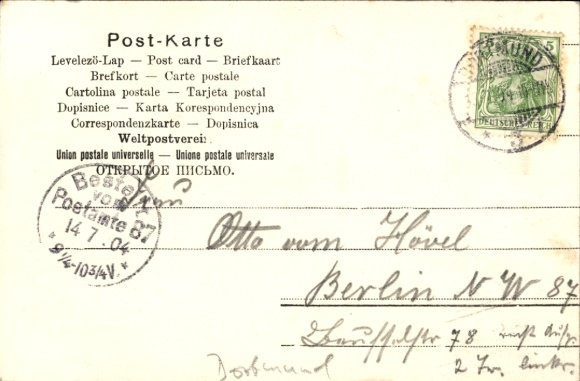 Post-Karte
Levelezö-Lap — Post card — Briefkaart
Brefkort — Carte postale
Cartolina postale — Tarjeta postal
Dopisnice — Karta Korespondencyjna
Correspondenzkarte — Dopisnica
Weltpostverein.
Union postale universelle — Unione postale universale
ОТКРЫТОЕ ПИСЬМО.
5
DEUTSCHES REICH
Bestellt
vom
Postamte 87
14 7. 04
* 9 1/4-10 3/4 V. *
Frau
Otto vom Hövel
Berlin N W 87
78
2 Tr. links.
Dortmund